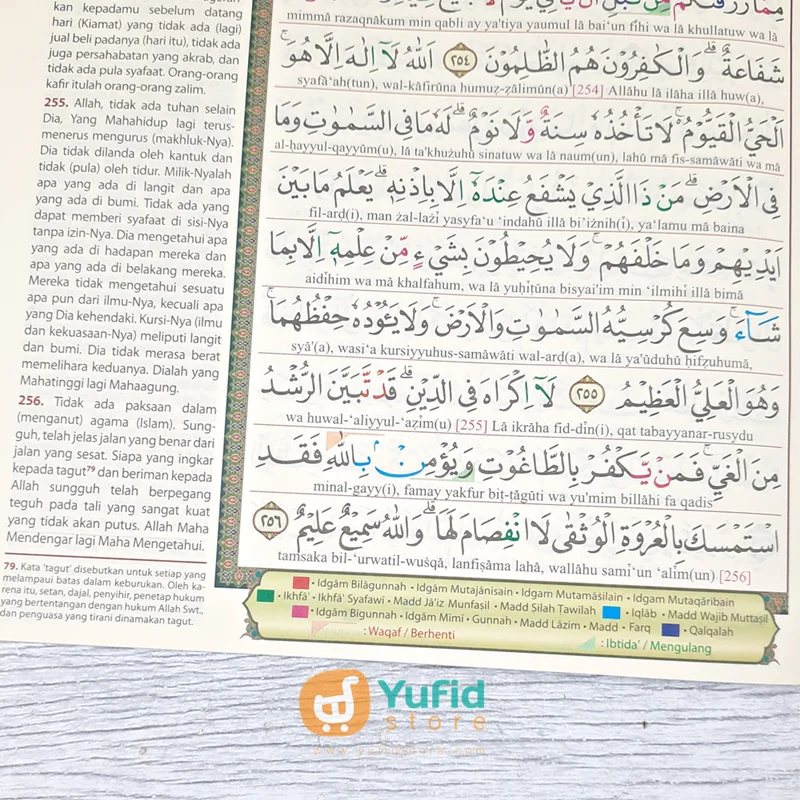 kan kepadamu sebelum datang
hari (Kiamat) yang tidak ada (lagi)
jual beli padanya (hari itu), tidak ada
juga persahabatan yang akrab, dan
tidak ada pula syafaat. Orang-orang
kafir itulah orang-orang zalim.
255. Allah, tidak ada tuhan selain
Dia, Yang Mahahidup lagi terus-
menerus mengurus (makhluk-Nya).
Dia tidak dilanda oleh kantuk dan
tidak (pula) oleh tidur. Milik-Nyalah
apa yang ada di langit dan apa
yang ada di bumi. Tidak ada yang
dapat memberi syafaat di sisi-Nya
tanpa izin-Nya. Dia mengetahui apa
yang ada di hadapan mereka dan
apa yang ada di belakang mereka.
Mereka tidak mengetahui sesuatu
apa pun dari ilmu-Nya, kecuali apa
yang Dia kehendaki. Kursi-Nya (ilmu
dan kekuasaan-Nya) meliputi langit
dan bumi. Dia tidak merasa berat
memelihara keduanya. Dialah yang
Mahatinggi lagi Mahaagung.
256. Tidak ada paksaan dalam
(menganut) agama (Islam). Sung-
guh, telah jelas jalan yang benar dari
jalan yang sesat. Siapa yang ingkar
kepada tagut79 dan beriman kepada
Allah sungguh telah berpegang
teguh pada tali yang sangat kuat
yang tidak akan putus. Allah Maha
Mendengar lagi Maha Mengetahui.
79. Kata 'tagut' disebutkan untuk setiap yang
melampaui batas dalam keburukan. Oleh ka-
rena itu, setan, dajal, penyihir, penetap hukum
yang bertentangan dengan hukum Allah Swt.,
dan penguasa yang tirani dinamakan tagut.
mimmā razaqnākum min qabli ay ya'tiya yaumul lā bai‘un fīhi wa lā khullatuw wa lā
شَفَاعَةٌ ۗ وَالْكٰفِرُوْنَ هُمُ الظّٰلِمُوْنَ ٢٥٤ اَللّٰهُ لَآ اِلٰهَ اِلَّا هُوَۚ
syafā‘ah(tun), wal-kāfirūna humuẓ-ẓālimūn(a) [254] Allāhu lā ilāha illā huw(a),
الْحَيُّ الْقَيُّوْمُ ەۚ لَا تَأْخُذُهٗ سِنَةٌ وَّلَا نَوْمٌۗ لَهٗ مَا فِى السَّمٰوٰتِ وَمَا
al-ḥayyul-qayyūm(u), lā ta'khużuhū sinatuw wa lā naum(un), lahū mā fis-samāwāti wa mā
فِى الْاَرْضِۗ مَنْ ذَا الَّذِيْ يَشْفَعُ عِنْدَهٗٓ اِلَّا بِاِذْنِهٖۗ يَعْلَمُ مَا بَيْنَ
fil-arḍ(i), man żal-lażī yasyfa‘u ‘indahū illā bi'iżnih(ī), ya‘lamu mā baina
اَيْدِيْهِمْ وَمَا خَلْفَهُمْۚ وَلَا يُحِيْطُوْنَ بِشَيْءٍ مِّنْ عِلْمِهٖٓ اِلَّا بِمَا
aidīhim wa mā khalfahum, wa lā yuḥīṭūna bisyai'im min ‘ilmihī illā bimā
شَاۤءَۚ وَسِعَ كُرْسِيُّهُ السَّمٰوٰتِ وَالْاَرْضَۚ وَلَا يَـُٔوْدُهٗ حِفْظُهُمَاۚ
syā'(a), wasi‘a kursiyyuhus-samāwāti wal-arḍ(a), wa lā ya'ūduhū ḥifẓuhumā,
وَهُوَ الْعَلِيُّ الْعَظِيْمُ ٢٥٥ لَآ اِكْرَاهَ فِى الدِّيْنِۗ قَدْ تَّبَيَّنَ الرُّشْدُ
wa huwal-‘aliyyul-‘aẓīm(u) [255] Lā ikrāha fid-dīn(i), qat tabayyanar-rusydu
مِنَ الْغَيِّۚ فَمَنْ يَّكْفُرْ بِالطَّاغُوْتِ وَيُؤْمِنْۢ بِاللّٰهِ فَقَدِ
minal-gayy(i), famay yakfur biṭ-ṭāgūti wa yu'mim billāhi fa qadis
اسْتَمْسَكَ بِالْعُرْوَةِ الْوُثْقٰى لَا انْفِصَامَ لَهَاۗ وَاللّٰهُ سَمِيْعٌ عَلِيْمٌ ٢٥٦
tamsaka bil-‘urwatil-wuṡqā, lanfiṣāma lahā, wallāhu samī‘un ‘alīm(un) [256]
• Idgām Bilāgunnah • Idgām Mutajānisain • Idgam Mutamāsilain • Idgam Mutaqāribain
• Ikhfā' • Ikhfā' Syafawī • Madd Jā'iz Munfaṣil • Madd Ṣilah Ṭawīlah • Iqlāb • Madd Wajib Muttaṣil
• Idgām Bigunnah • Idgām Mīmī • Gunnah • Madd Lāzim • Madd • Farq • Qalqalah
: Waqaf / Berhenti : Ibtida' / Mengulang
Yufid
store